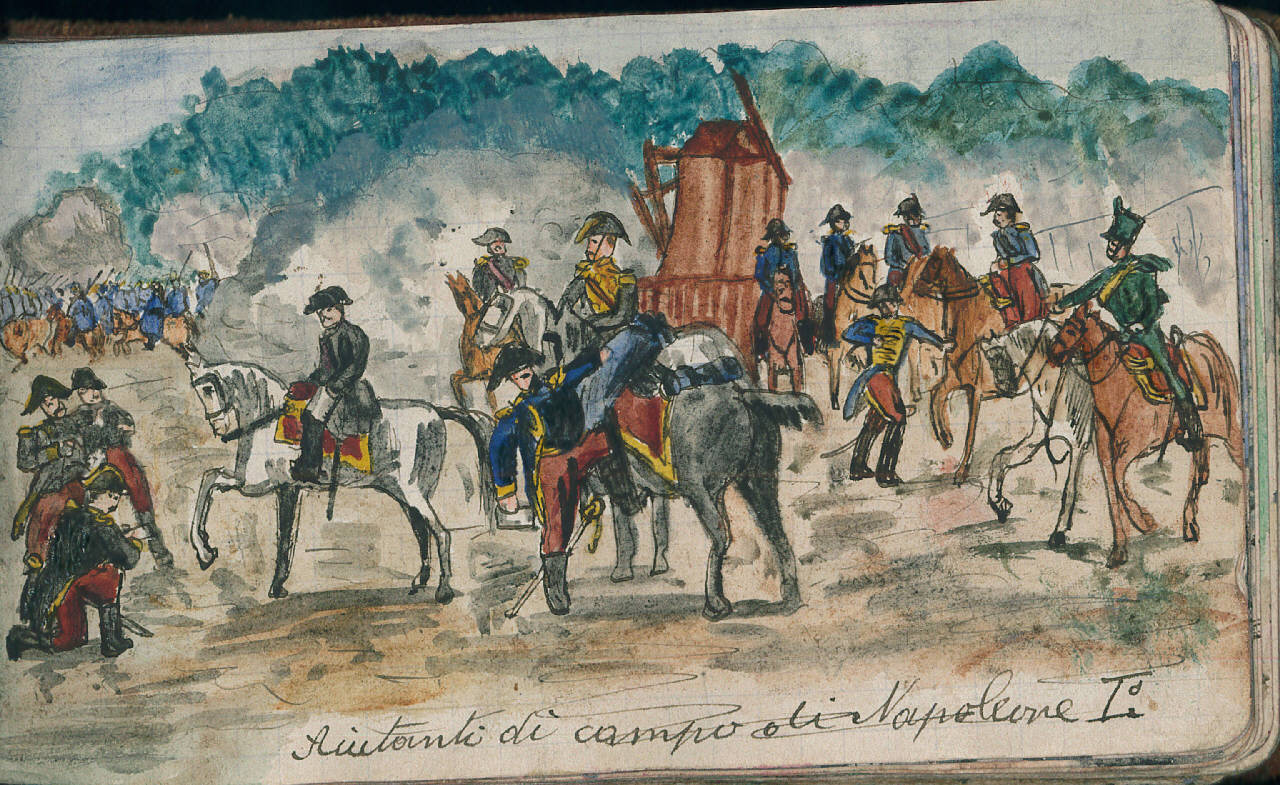 Aiutanti di campo di Napoleone Iº